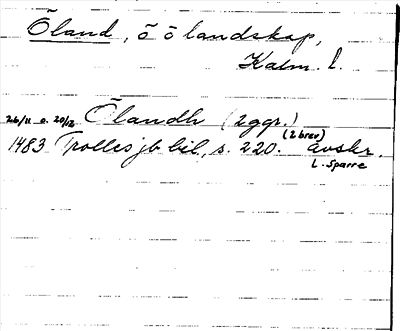 Öland, ö o landskap,
Kalm. l.
Ölandh (2 ggr.)
26/11 o. 20/12 (2 brev)
1483 Trolles jb bil, s. 220. avskr.
L. Sparre